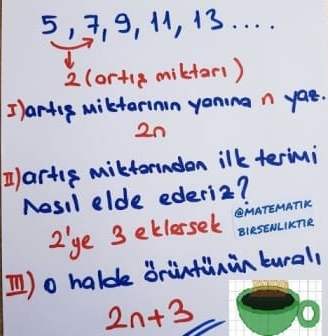 5, 7, 9, 11, 13 ....
2 (artış miktarı)
I) artış miktarının yanına n yaz.
2n
II) artış miktarından ilk terimi
nasıl elde ederiz?
2'ye 3 eklersek
@MATEMATIK
BIRSENLIKTIR
III) o halde örüntünün kuralı
2n+3